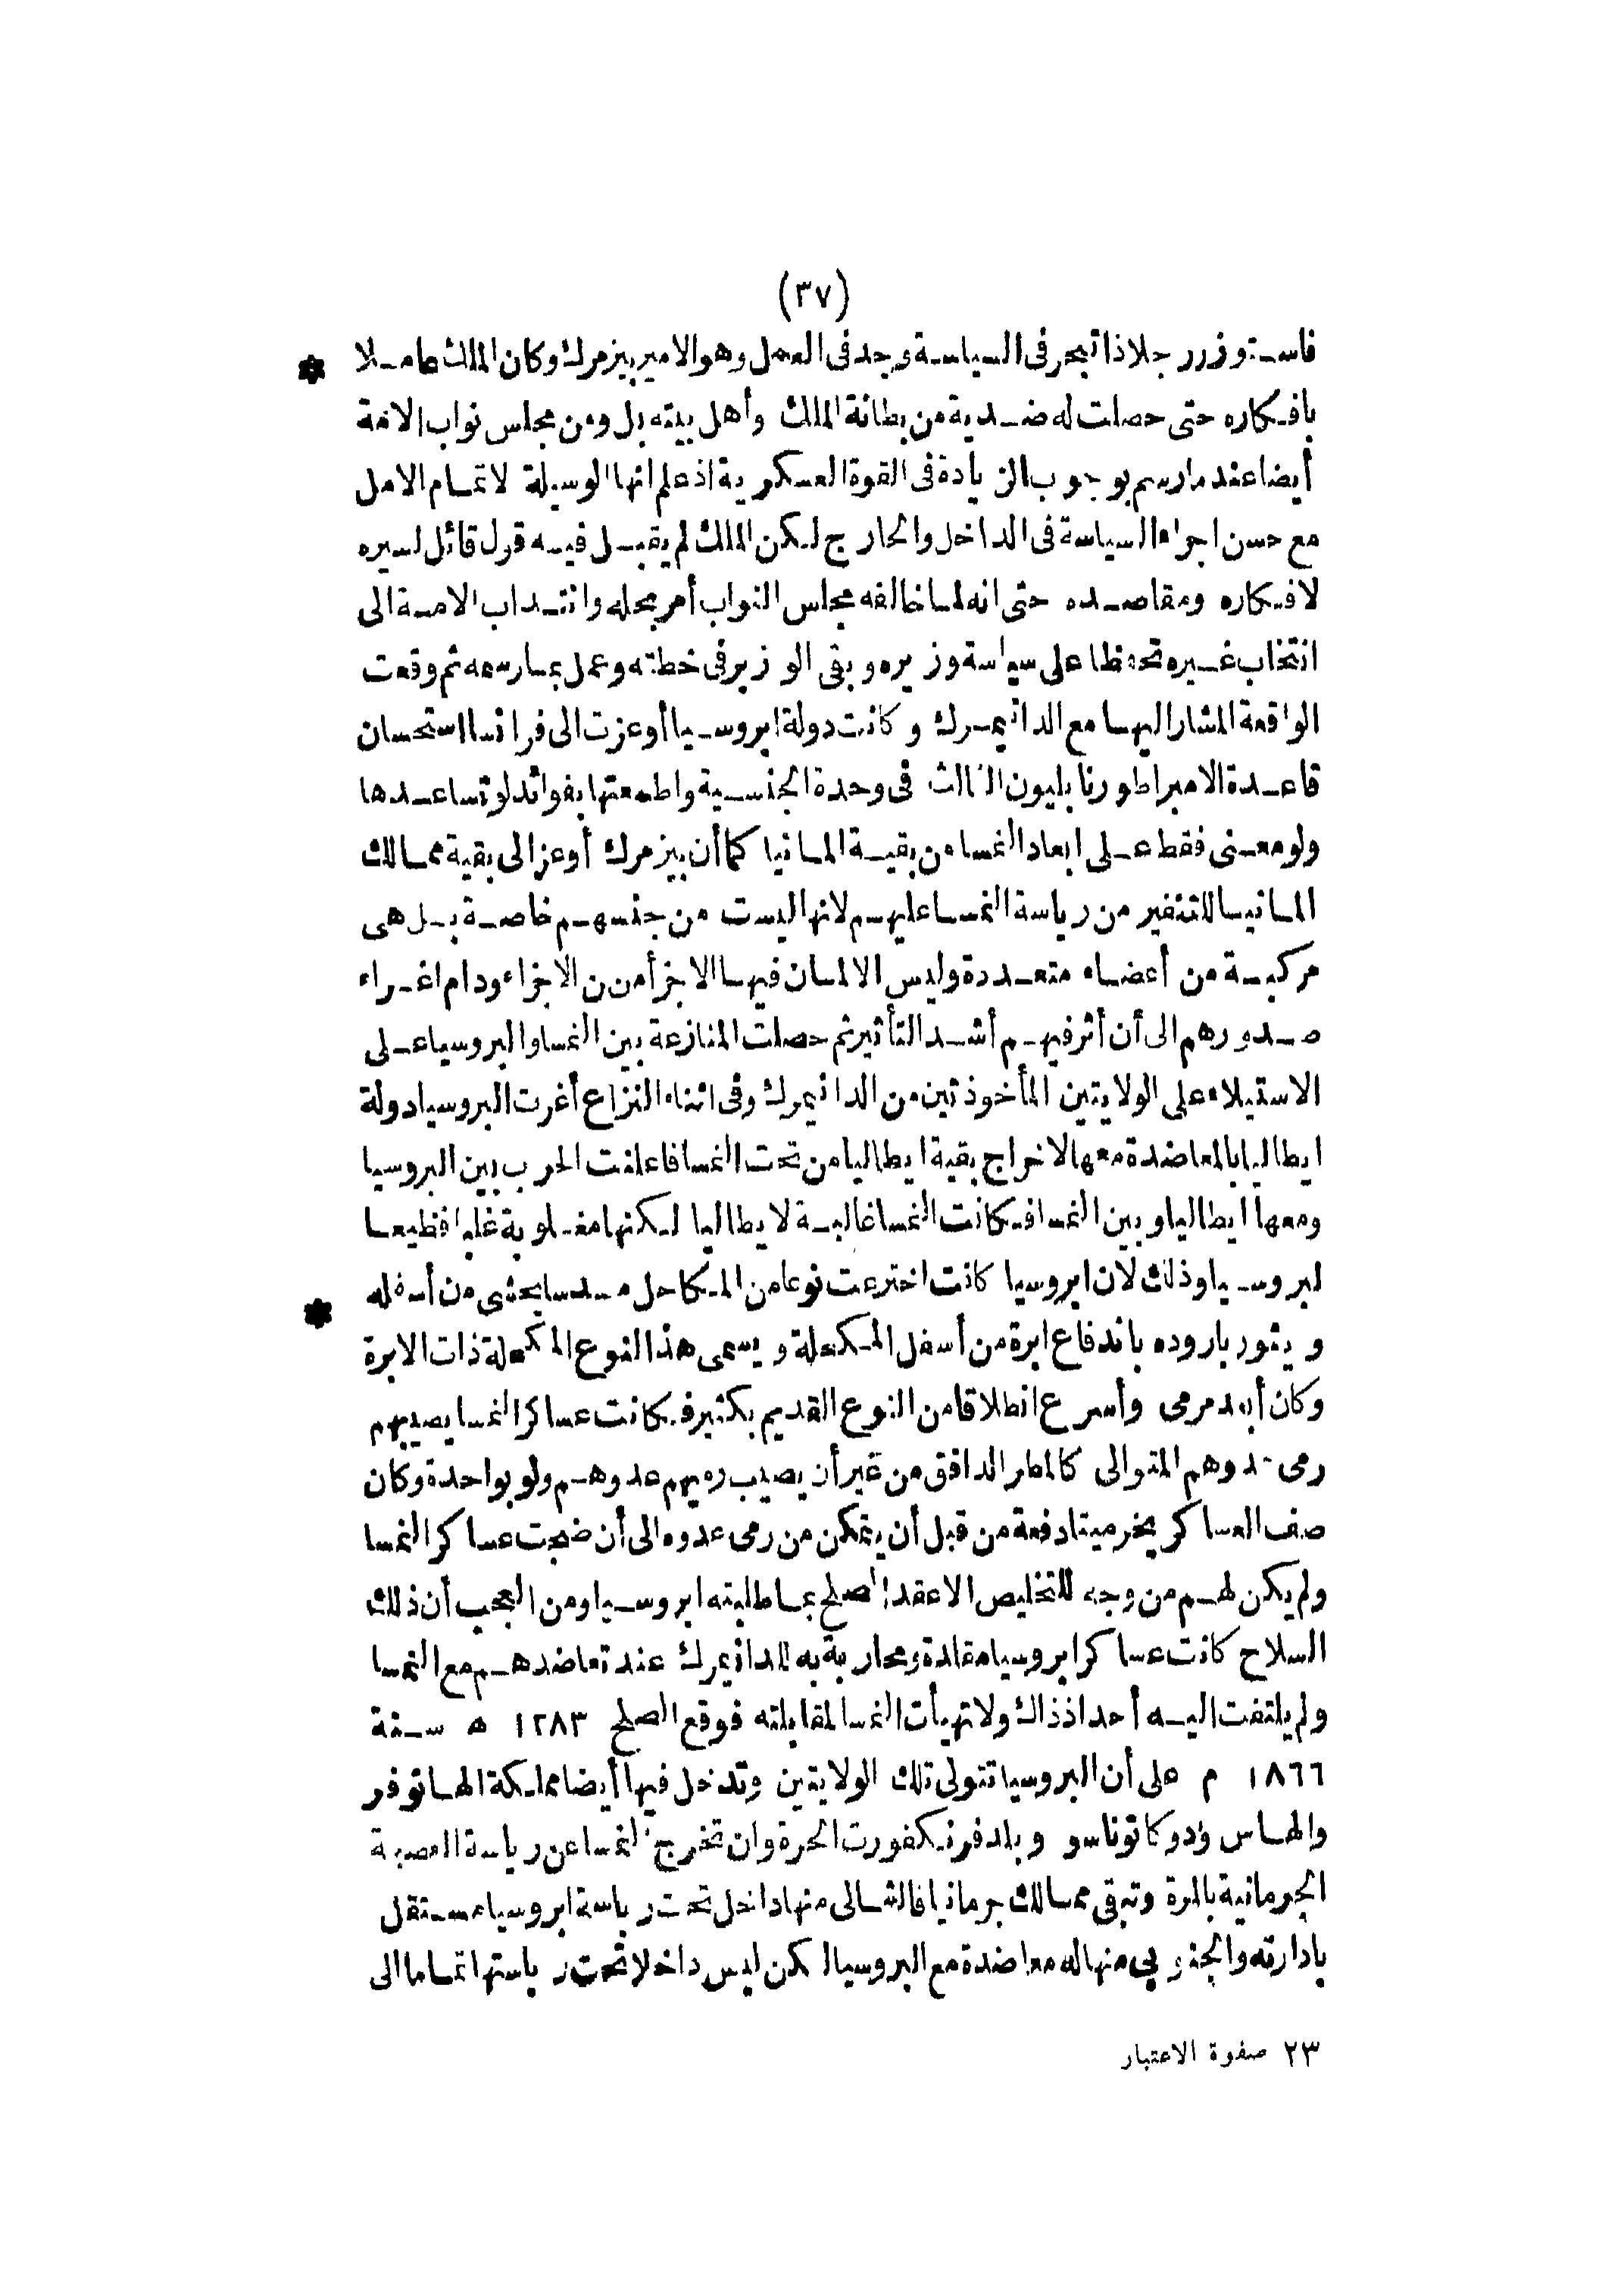 (٣٧)
فاستوزر رجلا ذا تبحر فى السياسة وجد فى العمل وهو الامير بيزمرك وكان الملك عاملا *
بافكاره حتى حصلت له ضدية من بطانة الملك وأهل بيته بل ومن مجلس نواب الامة
أيضا عند مارسم بوجوب الزيادة فى القوة العسكرية اذ علم انها الوسيلة لاتمام الامل
مع حسن اجراء السياسة فى الداخل والخارج لكن الملك لم يقبل فيه قول قائل لسيره
لافكاره ومقاصده حتى انه لما خالفه مجلس النواب أمر بحله وانتداب الامة الى
انتخاب غيره تحفظا على سياسة وزيره وبقى الوزير فى خطته وعمل بما رسمه ثم وقعت
الواقعة المشار اليها مع الدانيمرك وكانت دولة ابروسيا أوعزت الى فرانسا استحسان
قاعدة الامبراطور نابليون الثالث فى وحدة الجنسية واطمعتها بفوائد لو تساعدها
ولو معنى فقط على ابعاد النمسا من بقية المانيا كما أن بيزمرك أوعز الى بقية ممالك
المانيا للتنفير من رياسة النمسا عليهم لانها ليست من جنسهم خاصة بل هى
مركبة من أعضاء متعددة وليس الالمان فيها الا جزأ من الاجزاء ودام اغراء
صدورهم الى أن أثر فيهم أشد التأثير ثم حصلت المنازعة بين النمسا والبروسيا على
الاستيلاء على الولايتين المأخوذتين من الدانيمرك وفى اثناء النزاع أغرت البروسيا دولة
ايطاليا بالمعاضدة معها لاخراج بقية ايطاليا من تحت النمسا فاعلنت الحرب بين البروسيا
ومعها ايطاليا وبين النمسا فكانت النمسا غالبة لايطاليا لكنها مغلوبة غلبا فظيعا
لبروسيا وذلك لان ابروسيا كانت اخترعت نوعا من المكاحل مسدسا يحشى من أسفله *
ويثور باروده باندفاع ابرة من أسفل المكحلة ويسمى هذا النوع المكحلة ذات الابرة
وكان أبعد مرمى وأسرع انطلاقا من النوع القديم بكثير فكانت عساكر النمسا يصيبهم
رمى عدوهم المتوالى كالمطر الدافق من غير أن يصيب رميهم عدوهم ولو بواحدة وكان
صف العساكر يخر ميتا دفعة من قبل أن يتمكن من رمى عدوه الى أن ضجت عساكر النمسا
ولم يكن لهم من وجه للتخليص الا عقد الصلح بما طلبته ابروسيا ومن العجب أن ذلك
السلاح كانت عساكر ابروسيا مقلدة ومحاربة به للدانيمرك عند تعاضدهم مع النمسا
ولم يلتفت اليه أحد اذ ذاك ولا تهيأت النمسا لمقابلته فوقع الصلح ١٢٨٣ ه سنة
١٨٦٦ م على أن البروسيا تتولى تلك الولايتين وتدخل فيها أيضا مملكة الهانوفر
والهاس ودوكاتوناسو وبلد فرنكفورت الحرة وان تخرج النمسا عن رياسة العصبة
الجرمانية بالمرة وتبقى ممالك جرمانيا فالشمالى منها داخل تحت رياسة ابروسيا مستقل
بادارته والجنوبى منها له معاضدة مع البروسيا لكن ليس داخلا تحت رياستها تماما الى
٢٣ صفوة الاعتبار